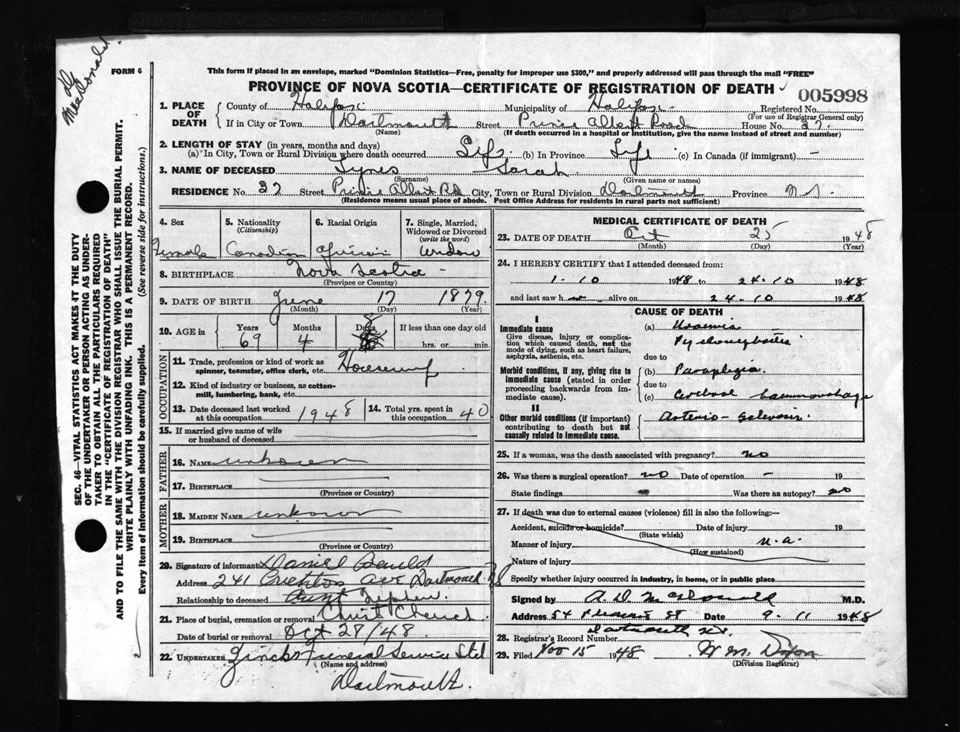 Dr MacDonald
FORM 6
This form if placed in an envelope, marked "Dominion Statistics—Free, penalty for improper use $300," and properly addressed will pass through the mail "FREE"
PROVINCE OF NOVA SCOTIA—CERTIFICATE OF REGISTRATION OF DEATH
005998
1. PLACE OF DEATH County of Halifax Municipality of Halifax Registered No.
(For use of Registrar General only)
If in City or Town Dartmouth Street Prince Albert Road House No. 37.
(Name) (If death occurred in a hospital or institution, give the name instead of street and number)
2. LENGTH OF STAY (in years, months and days)
(a) In City, Town or Rural Division where death occurred Life (b) In Province Life (c) In Canada (if immigrant) —
3. NAME OF DECEASED Tynes Sarah
(Surname) (Given name or names)
RESIDENCE No. 37 Street Prince Albert Rd City, Town or Rural Division Dartmouth Province N.S.
(Residence means usual place of abode. Post Office Address for residents in rural parts not sufficient)
4. Sex Female
5. Nationality (Citizenship) Canadian
6. Racial Origin African
7. Single, Married, Widowed or Divorced (write the word) Widow
8. BIRTHPLACE Nova Scotia
(Province or Country)
9. DATE OF BIRTH June 17 1879
(Month) (Day) (Year)
10. AGE in Years 69 Months 4 Days 8 If less than one day old hrs. or min.
OCCUPATION
11. Trade, profession or kind of work as spinner, teamster, office clerk, etc. Housewife
12. Kind of industry or business, as cotton-mill, lumbering, bank, etc.
13. Date deceased last worked at this occupation 1948
14. Total yrs. spent in this occupation 40
15. If married give name of wife or husband of deceased
FATHER
16. NAME unknown
17. BIRTHPLACE
(Province or Country)
MOTHER
18. MAIDEN NAME unknown
19. BIRTHPLACE
(Province or Country)
20. Signature of informant Daniel Bauld
Address 241 Crichton Ave Dartmouth NS
Relationship to deceased Aunt Nephew
21. Place of burial, cremation or removal Christ Church
Date of burial or removal Oct 28/48
22. UNDERTAKER Zinck's Funeral Service Ltd
(Name and address)
Dartmouth.
MEDICAL CERTIFICATE OF DEATH
23. DATE OF DEATH Oct 25 1948
(Month) (Day) (Year)
24. I HEREBY CERTIFY that I attended deceased from:
1-10 1948 to 24-10 1948
and last saw h alive on 24-10 1948
CAUSE OF DEATH
I
Immediate cause
Give disease, injury or complication which caused death, not the mode of dying, such as heart failure, asphyxia, asthenia, etc.
(a) Uraemia
due to
Morbid conditions, if any, giving rise to immediate cause (stated in order proceeding backwards from immediate cause).
(b) Paraplegia
due to
(c) Cerebral haemorrhage
II
Other morbid conditions (if important) contributing to death but not causally related to immediate cause.
Arterio-sclerosis
25. If a woman, was the death associated with pregnancy? no
26. Was there a surgical operation? no Date of operation — 19
State findings — Was there an autopsy? no
27. If death was due to external causes (violence) fill in also the following:—
Accident, suicide or homicide? Date of injury 19
(State which)
Manner of injury n.a.
(How sustained)
Nature of injury
Specify whether injury occurred in industry, in home, or in public place
Signed by A. D. McDonald M.D.
Address 54 St Date 9-11 1948
Dartmouth N.S.
28. Registrar's Record Number
29. Filed Nov 15 1948 W M. Dixon
(Division Registrar)
SEC. 46—VITAL STATISTICS ACT MAKES IT THE DUTY OF THE UNDERTAKER OR PERSON ACTING AS UNDERTAKER TO OBTAIN ALL THE PARTICULARS REQUIRED IN THE "CERTIFICATE OF REGISTRATION OF DEATH"
AND TO FILE THE SAME WITH THE DIVISION REGISTRAR WHO SHALL ISSUE THE BURIAL PERMIT.
WRITE PLAINLY WITH UNFADING INK. THIS IS A PERMANENT RECORD.
Every item of information should be carefully supplied. (See reverse side for instructions.)